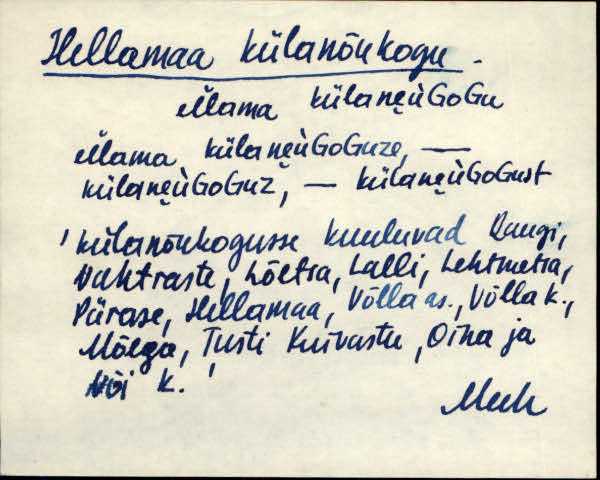 Hellamaa külanõukogu -
ĕĺlama külanęùGoGu
ĕĺlama külanęùGoGuze, —
külanęùGoGuz, — külanęùGoGust
'külanõukogusse kuuluvad Raugi,
Vahtraste, Lõetsa, Lalli, Lehtmetsa,
Pürase, Hellamaa, Võlla as., Võlla k.,
Mõega, Tusti Kuivastu, Oina ja
Nõi k.'